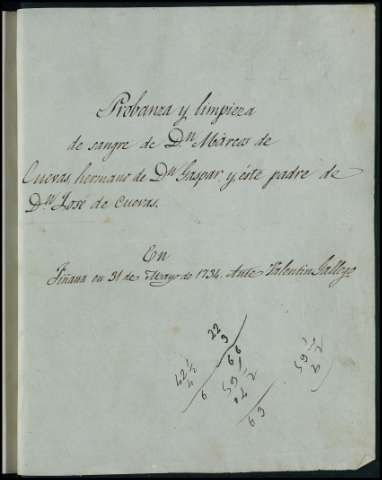 Probanza y limpieza
de sangre de Dn Márcos de
Cuevas, hermano de Dn Gaspar y éste padre de
Dn José de Cuevas.
En
Fiñana en 31 de Mayo de 1734. Ante Valentin Gallego
22
9
66
42 1/2
6
63